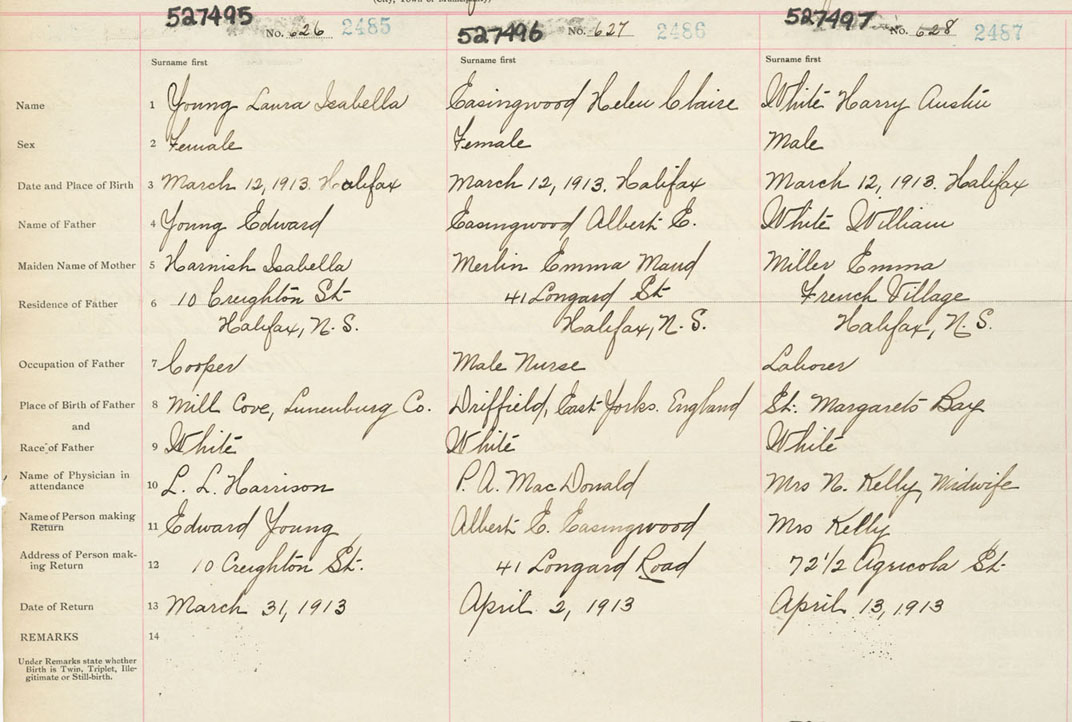 (City, Town or Municipality)
527495 No. 626 2485 527496 No. 627 2486 527497 No. 628 2487
Surname first Surname first Surname first
Name 1 Young Laura Isabella Easingwood Helen Claire White Harry Austin
Sex 2 Female Female Male
Date and Place of Birth 3 March 12, 1913. Halifax March 12, 1913. Halifax March 12, 1913. Halifax
Name of Father 4 Young Edward Easingwood Albert E. White William
Maiden Name of Mother 5 Harnish Isabella Merlin Emma Maud Miller Emma
Residence of Father 6 10 Creighton St 41 Longard St French Village
Halifax, N.S. Halifax, N.S. Halifax, N.S.
Occupation of Father 7 Cooper Male Nurse Laborer
Place of Birth of Father 8 Mill Cove, Lunenburg Co. Driffield, East Yorks. England St. Margarets Bay
and
Race of Father 9 White White White
Name of Physician in
attendance 10 L. L. Harrison P. A. MacDonald Mrs N. Kelly, Midwife
Name of Person making
Return 11 Edward Young Albert E. Easingwood Mrs Kelly
Address of Person mak-
ing Return 12 10 Creighton St. 41 Longard Road 72 1/2 Agricola St.
Date of Return 13 March 31, 1913 April 2, 1913 April 13, 1913
REMARKS 14
Under Remarks state whether
Birth is Twin, Triplet, Ille-
gitimate or Still-birth.